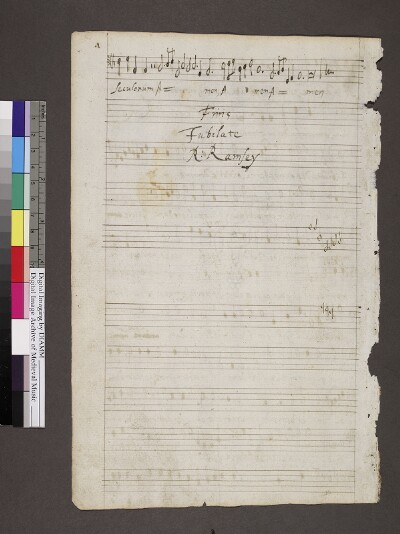 Seculorum A= men, A men A= men
Finis
Jubilate
Ro: Ramsey
Digital Imaging by DIAMM
Digital Image Archive of Medieval Music